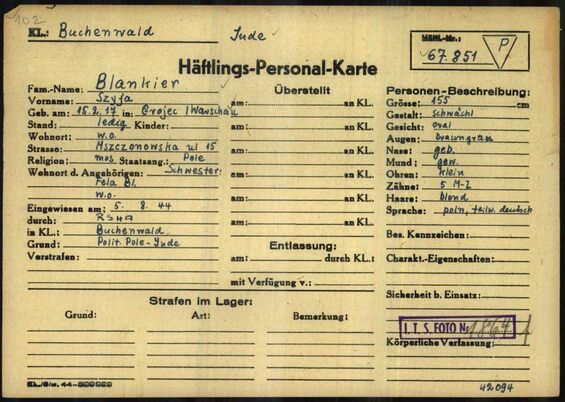 102
KL.: Buchenwald
Jude
Häftl.-Nr.:
67.851
P
Häftlings-Personal-Karte
Fam.-Name: Blankier
Vorname: Szyja
Geb. am: 15.2.17 in: Grojec / Warschau
Stand: ledig Kinder:
Wohnort: w.o.
Strasse: Mszczonowska ul 15
Religion: mos. Staatsang.: Pole
Wohnort d. Angehörigen: Schwester:
Fela Bl.
w.o.
Eingewiesen am: 5. 8. 44
durch: RSHA
in KL.: Buchenwald
Grund: Polit. Pole-Jude
Vorstrafen:
Überstellt
am: an KL.
am: an KL.
am: an KL.
am: an KL.
am: an KL.
am: an KL.
Entlassung:
am: durch KL.:
mit Verfügung v.:
Personen-Beschreibung:
Grösse: 155 cm
Gestalt: schwächl
Gesicht: oval
Augen: braungrau
Nase: geb.
Mund: gew.
Ohren: klein
Zähne: 5 M-Z
Haare: blond
Sprache: poln, teilw. deutsch
Bes. Kennzeichen:
Charakt.-Eigenschaften:
Sicherheit b. Einsatz:
I.T.S. FOTO Nr
Körperliche Verfassung:
Strafen im Lager:
Grund: Art: Bemerkung:
42094